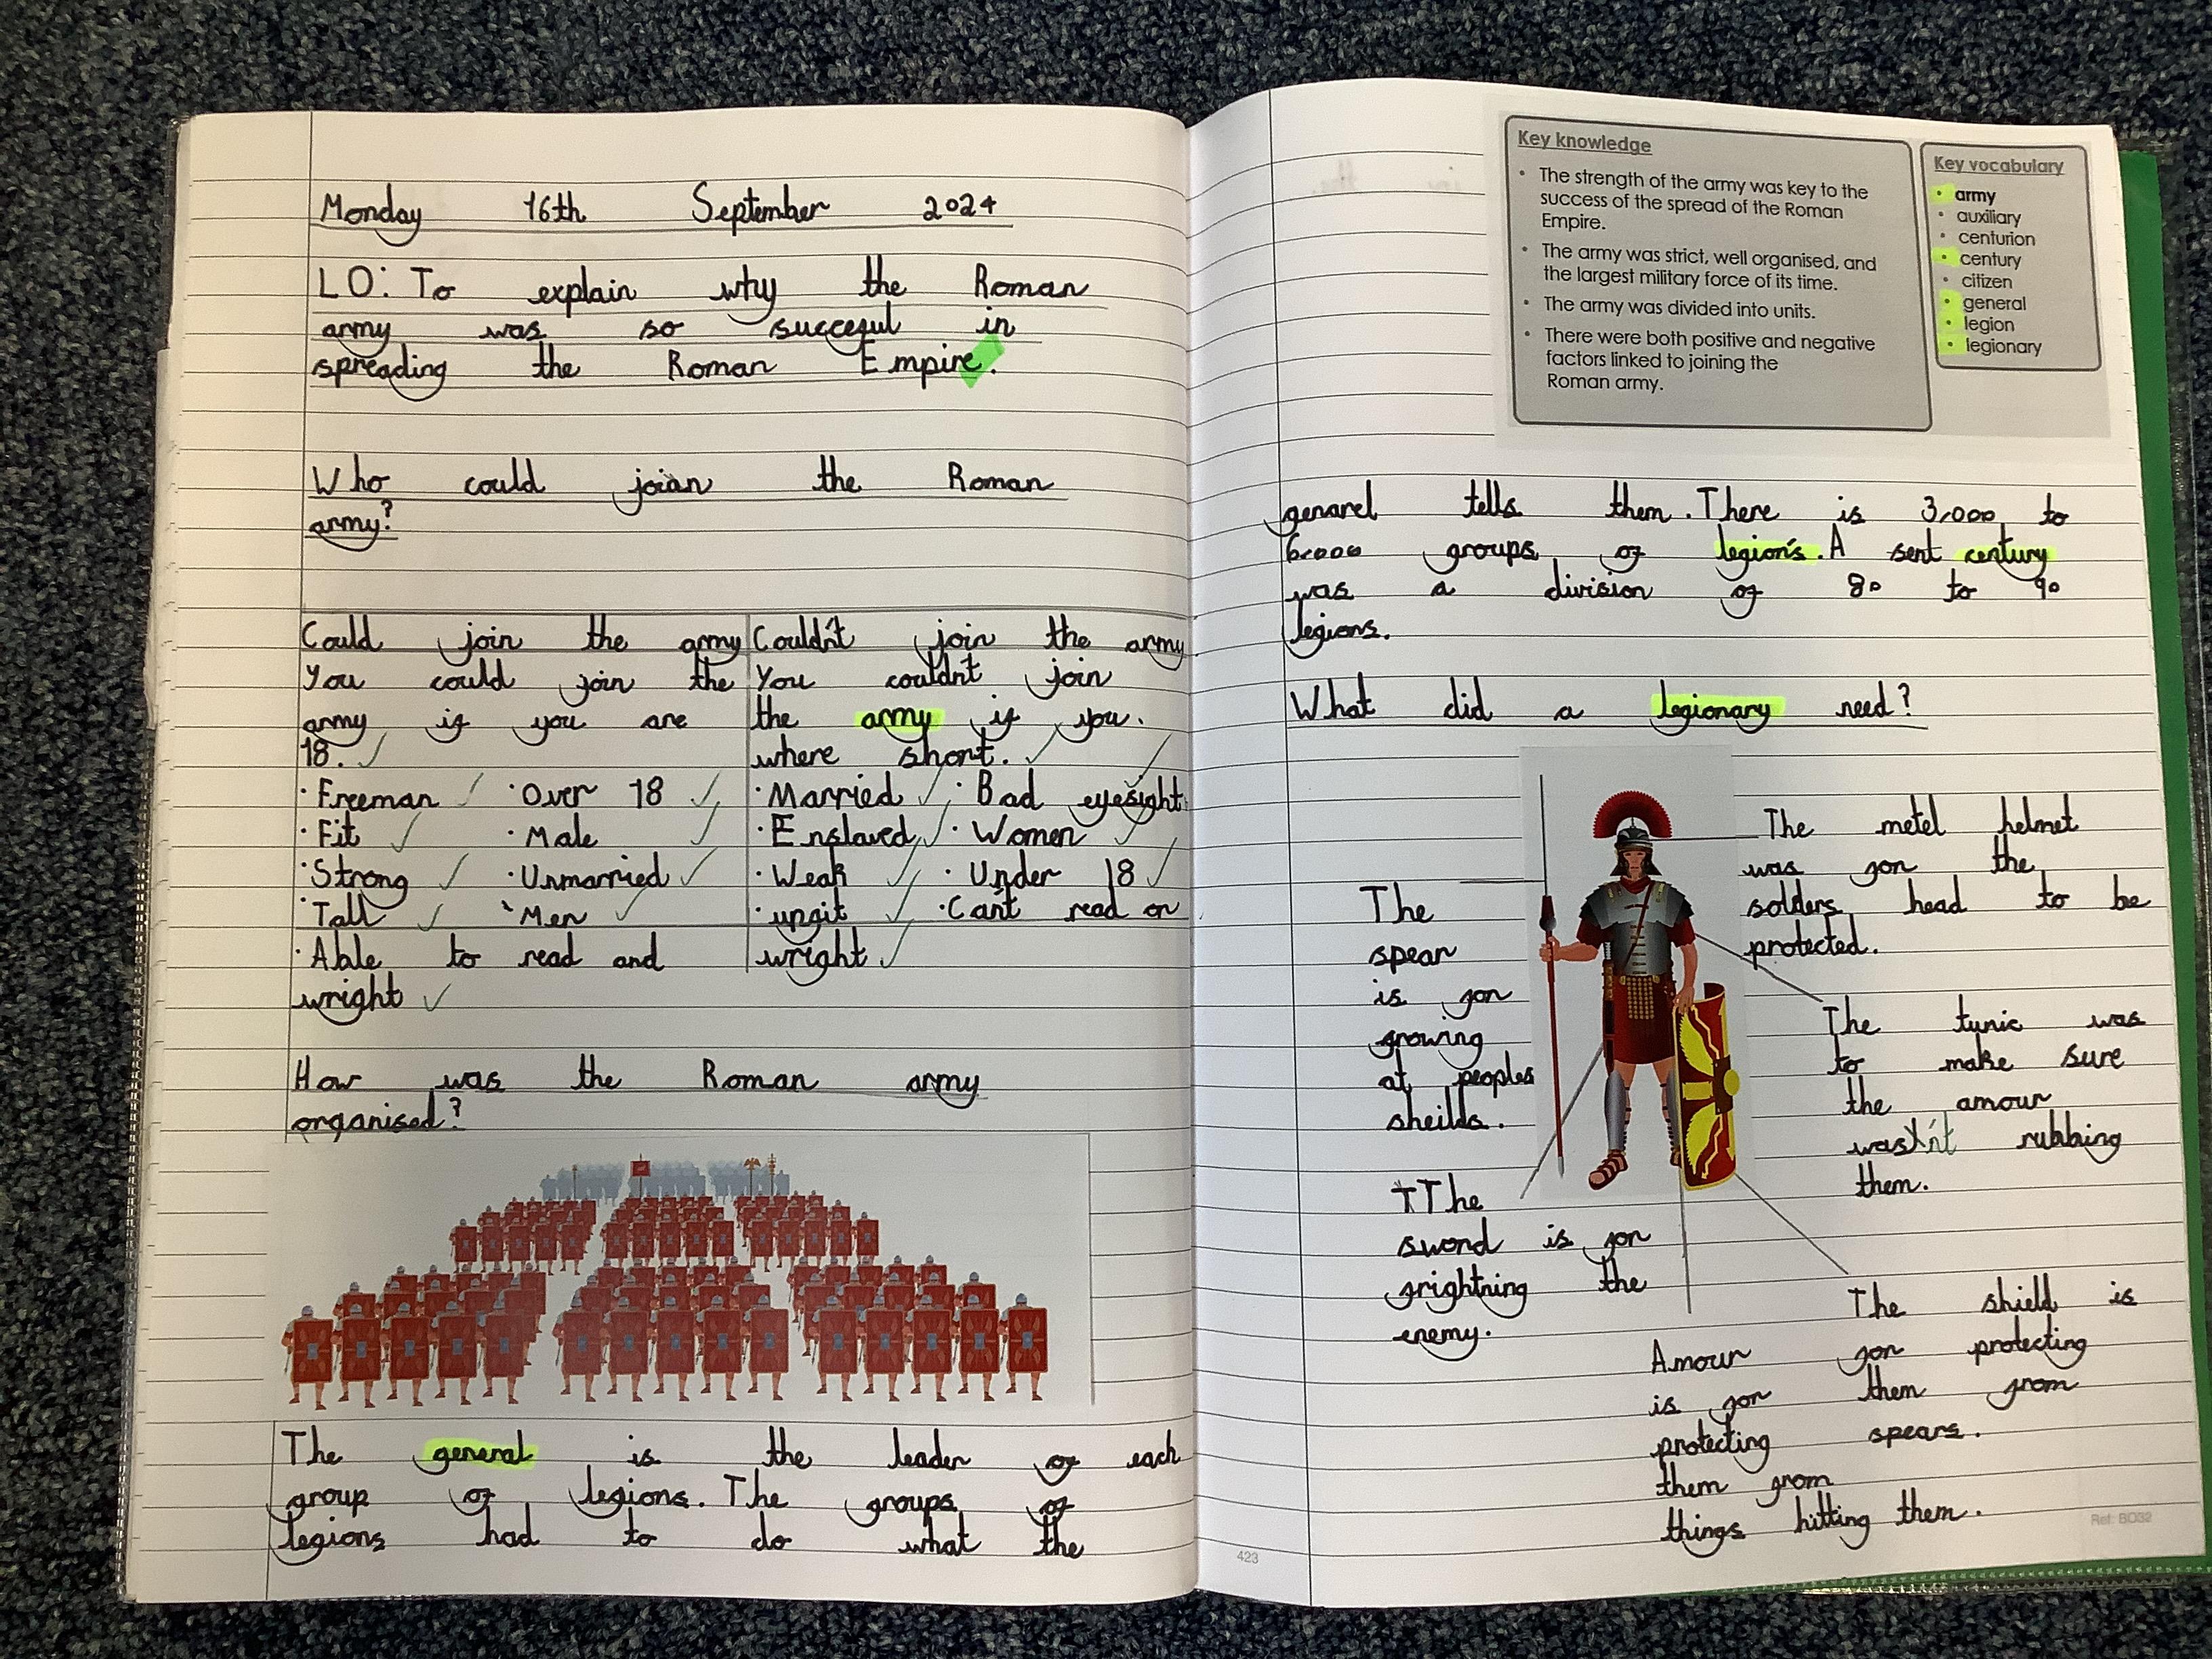 Monday 16th September 2024
LO: To explain why the Roman
army was so succeful in
spreading the Roman Empire.
Who could joian the Roman
army?
Could join the army
You could join the
army if you are
18.
· Freeman · Over 18
· Fit · Male
· Strong · Unmarried
· Tall · Men
· Able to read and
wright
Couldn't join the army
You couldn't join
the army if you.
where short.
· Married · Bad eyesight
· Enslaved · Women
· Weak · Under 18
· unfit · Can't read or
wright
How was the Roman army
organised?
The general is the leader of each
group of legions. The groups of
legions had to do what the
Key knowledge
• The strength of the army was key to the
success of the spread of the Roman
Empire.
• The army was strict, well organised, and
the largest military force of its time.
• The army was divided into units.
• There were both positive and negative
factors linked to joining the
Roman army.
Key vocabulary
• army
• auxiliary
• centurion
• century
• citizen
• general
• legion
• legionary
genarel tells them. There is 3,000 to
6,000 groups of legion's. A sent century
was a division of 80 to 90
legions.
What did a legionary need?
The metel helmet
was for the
solders head to be
protected.
The
spear
is for
frowing
at peoples
sheilds.
The tunic was
to make sure
the amour
wasn't rubbing
them.
TThe
sword is for
frightning the
enemy.
The shield is
for protecting
them from
spears.
Amour
is for
protecting
them from
things hitting them.
423
Ref: BD32